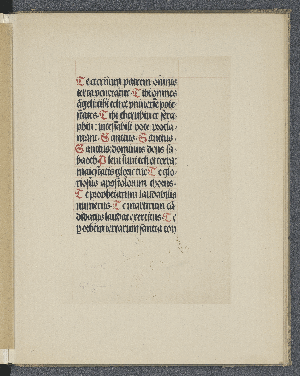 Te eternum patrem omnis
terra veneratur Tibi omnes
angeli tibi celi et universe pote
states Tibi cherubin et sera
phin incessabili voce procla
mant Sanctus Sanctus
Sanctus dominus deus sa
baoth Pleni sunt celi et terra
maiestatis glorie tue Te glo
riosus apostolorum chorus
Te prophetarum laudabilis
numerus Te martirum cā
didatus laudat exercitus Te
p orbem terrarum sancta con